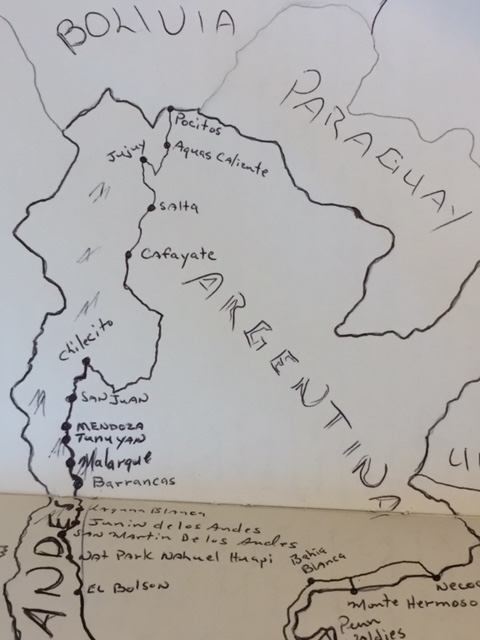 BOLIVIA
PARAGUAY
Pocitos
Aguas Caliente
Jujuy
SAltA
CAfAyate
ARGENTINA
Chilecito
SAN JUAN
MENDOZA
Tunuyan
Malargue
Barrancas
Laguna Blanca
Junin de los Andes
SAN MARTIN De Los Andes
NAt PARK NAhuel HuApi
EL BOLSON
ANDE
Bahia
Blanca
Monte Hermoso
Necoc
Penn
Valdies